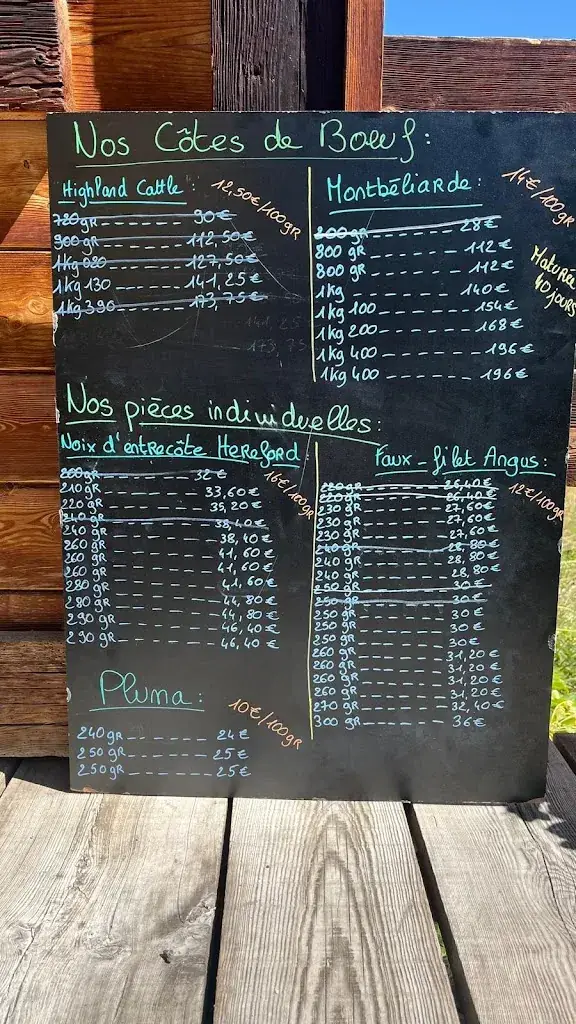 Nos Côtes de Boeuf :
Highland Cattle : 12,50€/100gR
720gR ------ 90€
900gR ------ 112,50€
1kg 020 ------ 127,50€
1kg 130 ------ 141,25€
1kg 390 ------ 173,75€
Montbéliarde : 14€/100gR
28€
800gR ------ 112€
800gR ------ 112€
1kg ------ 140€
1kg 100 ------ 154€
1kg 200 ------ 168€
1kg 400 ------ 196€
1kg 400 ------ 196€
40 jours
Nos pièces individuelles :
Noix d'entrecôte Hereford 16€/100gR
200gR ------ 32€
210gR ------ 33,60€
220gR ------ 35,20€
240gR ------ 38,40€
240gR ------ 38,40€
260gR ------ 41,60€
260gR ------ 41,60€
260gR ------ 41,60€
280gR ------ 44,80€
280gR ------ 44,80€
290gR ------ 46,40€
290gR ------ 46,40€
Faux-filet Angus : 12€/100gR
220gR ------ 26,40€
220gR ------ 26,40€
230gR ------ 27,60€
230gR ------ 27,60€
230gR ------ 27,60€
240gR ------ 28,80€
240gR ------ 28,80€
240gR ------ 28,80€
250gR ------ 30€
250gR ------ 30€
250gR ------ 30€
250gR ------ 30€
250gR ------ 30€
260gR ------ 31,20€
260gR ------ 31,20€
260gR ------ 31,20€
260gR ------ 31,20€
270gR ------ 32,40€
300gR ------ 36€
Pluma : 10€/100gR
240gR ------ 24€
250gR ------ 25€
250gR ------ 25€